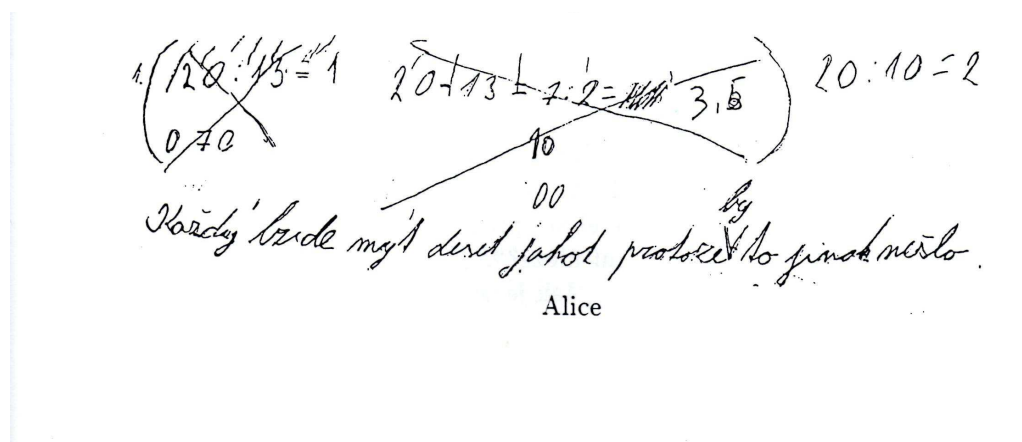 1. (120 : 13 = 1 20 - 13 = 7 : 2 = 3,5) 20 : 10 = 2
0 70 10
00
Každý bude myt deset jahot protože by to jinak nešlo.
Alice